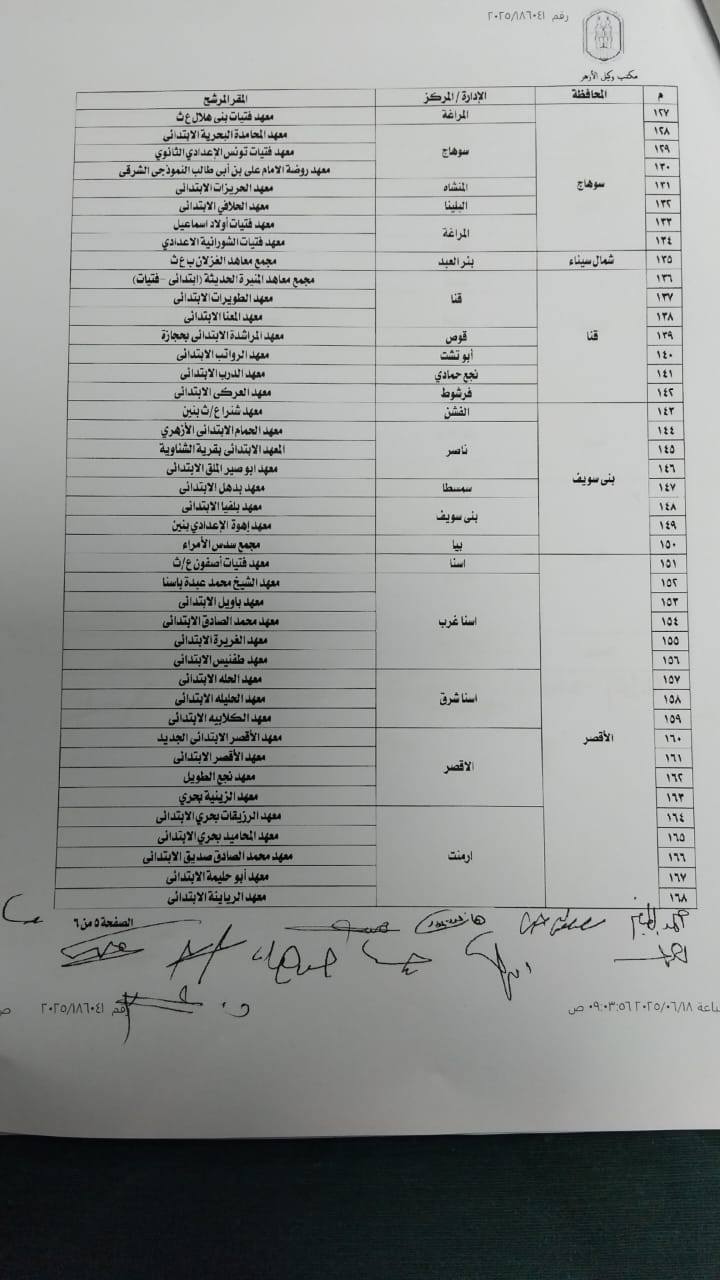 رقم ٢٠٢٥/١٨٦٠٤١
مكتب وكيل الأزهر
م المحافظة الإدارة / المركز المقر المرشح
١٢٧ سوهاج المراغة معهد فتيات بنى هلال ع ث
١٢٨ سوهاج معهد المحامدة البحرية الابتدائى
١٢٩ معهد فتيات تونس الإعدادي الثانوي
١٣٠ معهد روضة الامام على بن أبى طالب النموذجى الشرقى
١٣١ المنشاه معهد الحريزات الابتدائى
١٣٢ البلينا معهد الحلافي الابتدائى
١٣٣ المراغة معهد فتيات أولاد اسماعيل
١٣٤ معهد فتيات الشورانية الاعدادي
١٣٥ شمال سيناء بئر العبد مجمع معاهد الغزلان ب ع ث
١٣٦ قنا قنا مجمع معاهد المنيرة الحديثة (ابتدائى - فتيات)
١٣٧ معهد الطويرات الابتدائى
١٣٨ معهد المعنا الابتدائى
١٣٩ قوص معهد المراشدة الابتدائى بحجازة
١٤٠ أبو تشت معهد الرواتب الابتدائى
١٤١ نجع حمادي معهد الدرب الابتدائى
١٤٢ فرشوط معهد العركى الابتدائى
١٤٣ بنى سويف الفشن معهد شنرا ع/ث بنين
١٤٤ ناصر معهد الحمام الابتدائى الأزهري
١٤٥ المعهد الابتدائى بقرية الشناوية
١٤٦ معهد ابو صير الملق الابتدائى
١٤٧ سمسطا معهد بدهل الابتدائى
١٤٨ بنى سويف معهد بلفيا الابتدائى
١٤٩ معهد إهوة الإعدادي بنين
١٥٠ ببا مجمع سدس الأمراء
١٥١ الأقصر اسنا معهد فتيات أصفون ع/ث
١٥٢ اسنا غرب معهد الشيخ محمد عبدة باسنا
١٥٣ معهد باويل الابتدائى
١٥٤ معهد محمد الصادق الابتدائى
١٥٥ معهد الغريرة الابتدائى
١٥٦ معهد طفنيس الابتدائى
١٥٧ اسنا شرق معهد الحله الابتدائى
١٥٨ معهد الحليله الابتدائى
١٥٩ معهد الكلابيه الابتدائى
١٦٠ الاقصر معهد الأقصر الابتدائى الجديد
١٦١ معهد الأقصر الابتدائى
١٦٢ معهد نجع الطويل
١٦٣ معهد الزينية بحري
١٦٤ ارمنت معهد الرزيقات بحري الابتدائى
١٦٥ معهد المحاميد بحري الابتدائى
١٦٦ معهد محمد الصادق صديق الابتدائى
١٦٧ معهد أبو حليمة الابتدائى
١٦٨ معهد الرياينة الابتدائى
الصفحة ٥ من ٦
٢٠٢٥/٠٦/١٨ ٠٩:٠٣:٥٦ ص
رقم ٢٠٢٥/١٨٦٠٤١